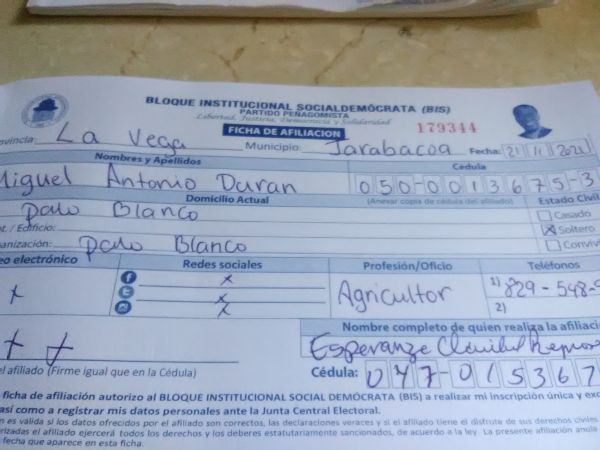 BLOQUE INSTITUCIONAL SOCIALDEMÓCRATA (BIS)
PARTIDO PEÑAGOMISTA
Libertad, Justicia, Democracia y Solidaridad
FICHA DE AFILIACION 179344
ovincia: La Vega Municipio: Jarabacoa Fecha: 21 11 2021
Nombres y Apellidos Cédula
Miguel Antonio Duran 050-0013675-3
Domicilio Actual (Anexar copia de cédula del afiliado) Estado Civil
palo Blanco Casado
t. / Edificio: Soltero
ganización: palo Blanco Convivi
eo electrónico Redes sociales Profesión/Oficio Teléfonos
x x Agricultor 1) 829-548-
x 2)
x
Nombre completo de quien realiza la afiliació
Esperanze
el afiliado (Firme igual que en la Cédula) Cédula: 047-015367
ficha de afiliación autorizo al BLOQUE INSTITUCIONAL SOCIAL DEMÓCRATA (BIS) a realizar mi inscripción única y exc
así como a registrar mis datos personales ante la Junta Central Electoral.
n es valida si los datos ofrecidos por el afiliado son correctos, las declaraciones veraces y si el afiliado tiene el disfrute de sus derechos civiles
rizadas el afiliado ejercerá todos los derechos y los deberes estatutariamente sancionados, de acuerdo a la ley. La presente afiliación anula
fecha que aparece en esta ficha.